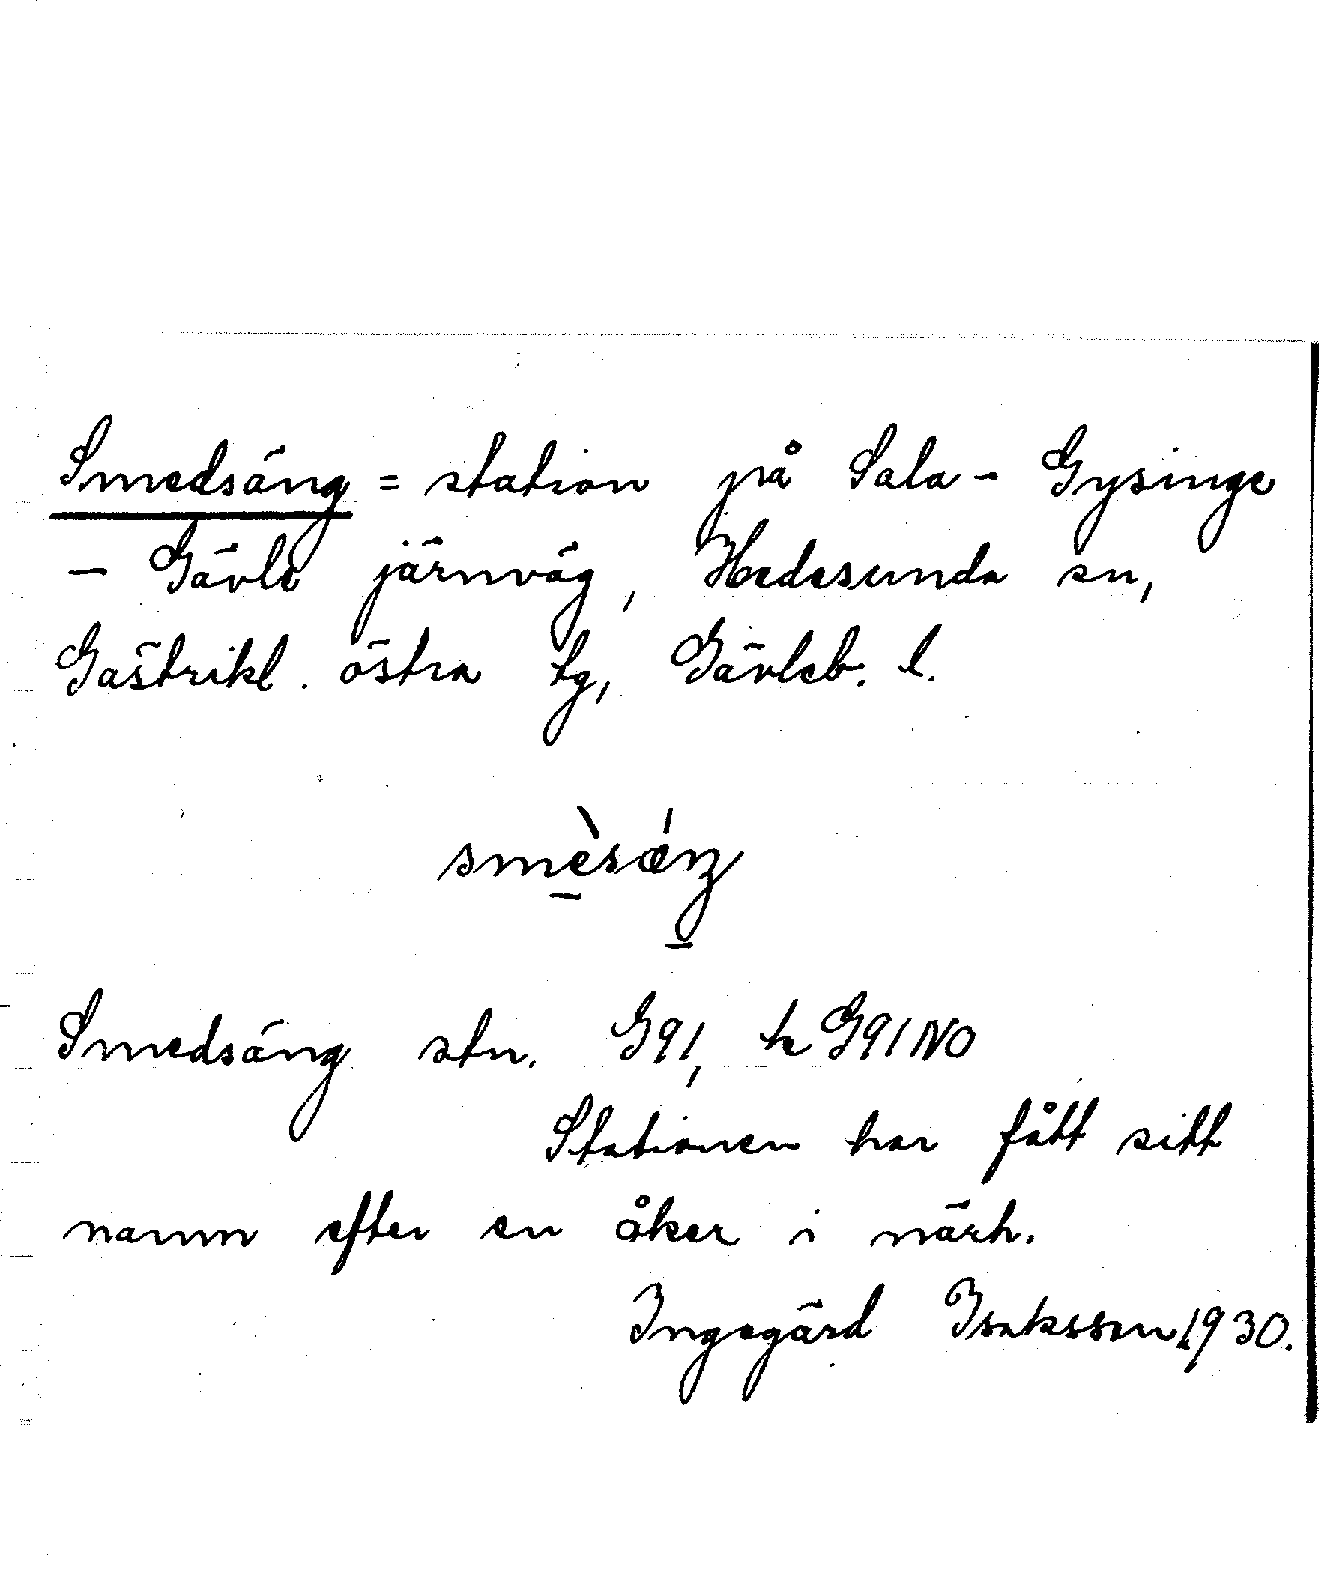 Smedsäng = station på Sala - Gysinge
- Gävle järnväg, Hedesunda sn,
Gästrikl. östra tg, Gävleb. l.
smèsǽŋ
Smedsäng stn. G91, k G91NO
Stationen har fått sitt
namn efter en åker i närh.
Ingegärd Isaksson 1930.